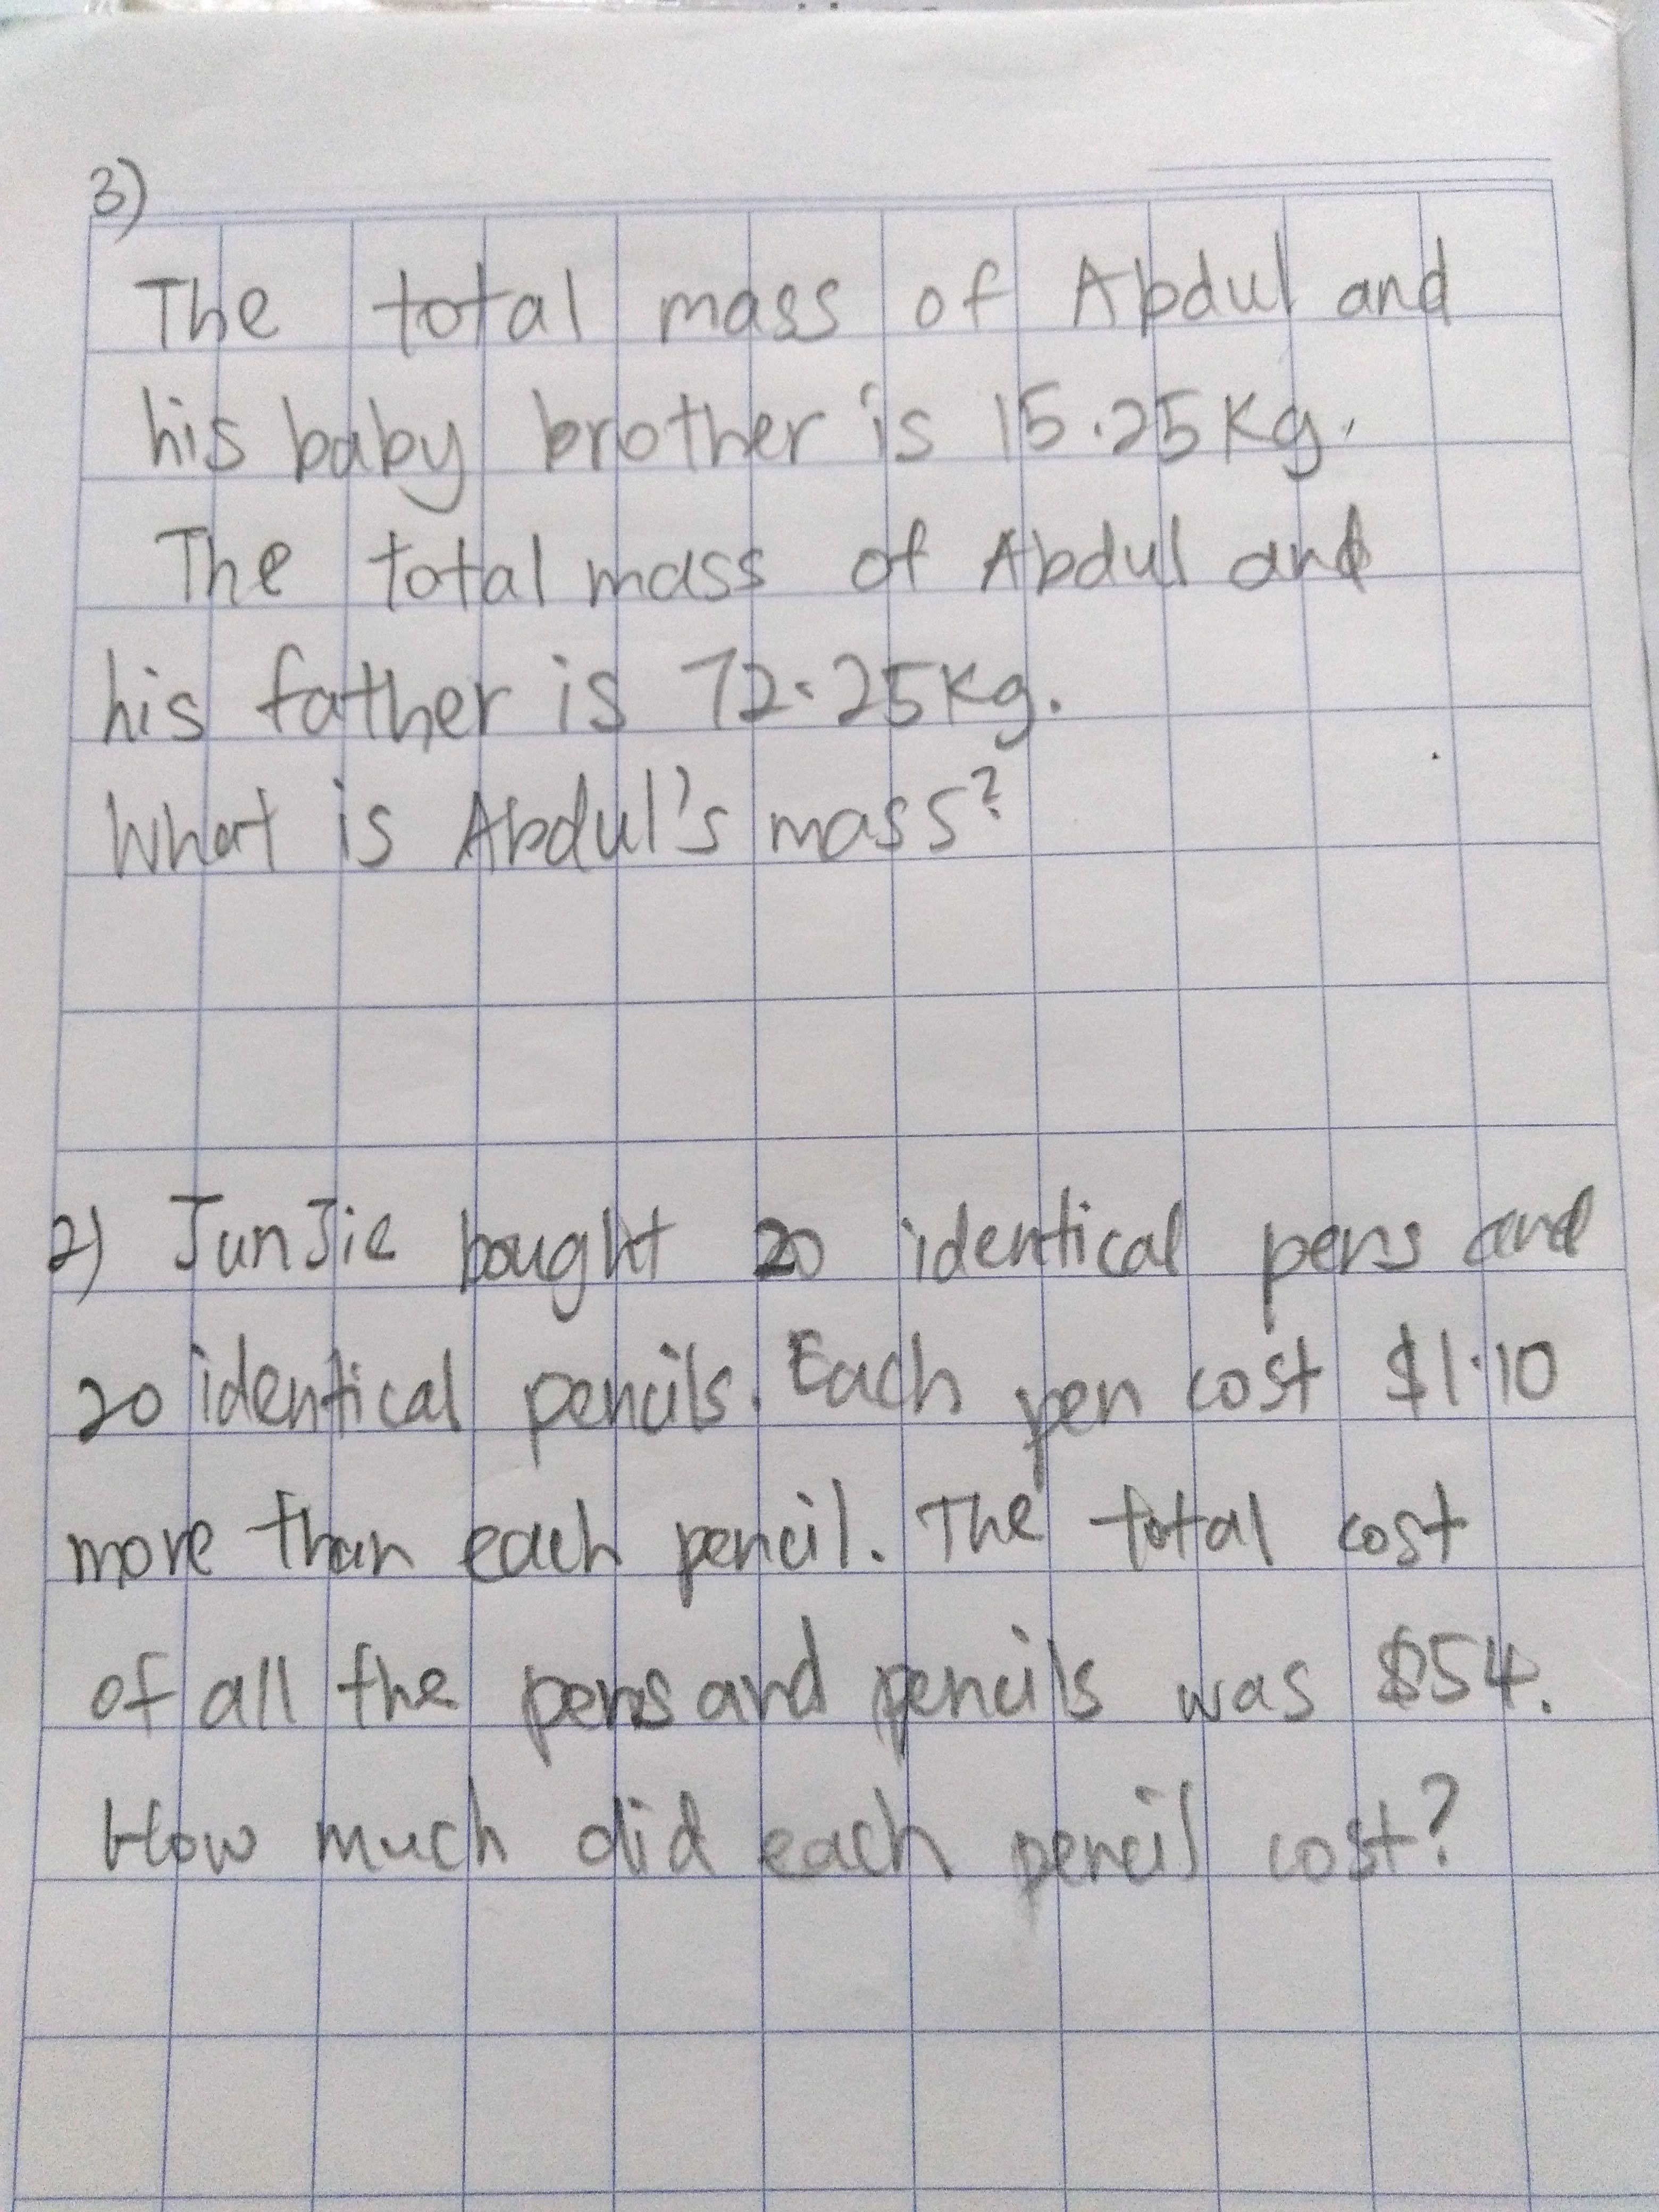 3)
The total mass of Abdul and
his baby brother is 15.25Kg.
The total mass of Abdul and
his father is 72.25Kg.
What is Abdul's mass?
2) JunJie bought 20 identical pens and
20 identical pencils. Each pen cost $1.10
more than each pencil. The total cost
of all the pens and pencils was $54.
How much did each pencil cost?